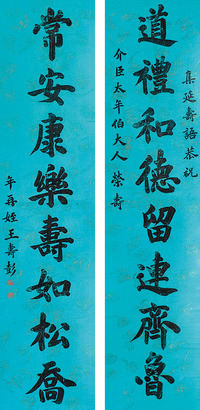 集延壽語恭祝
道禮和德留連齊魯
介臣太年伯大人榮壽
常安康樂壽如松喬
年再姪王壽彭